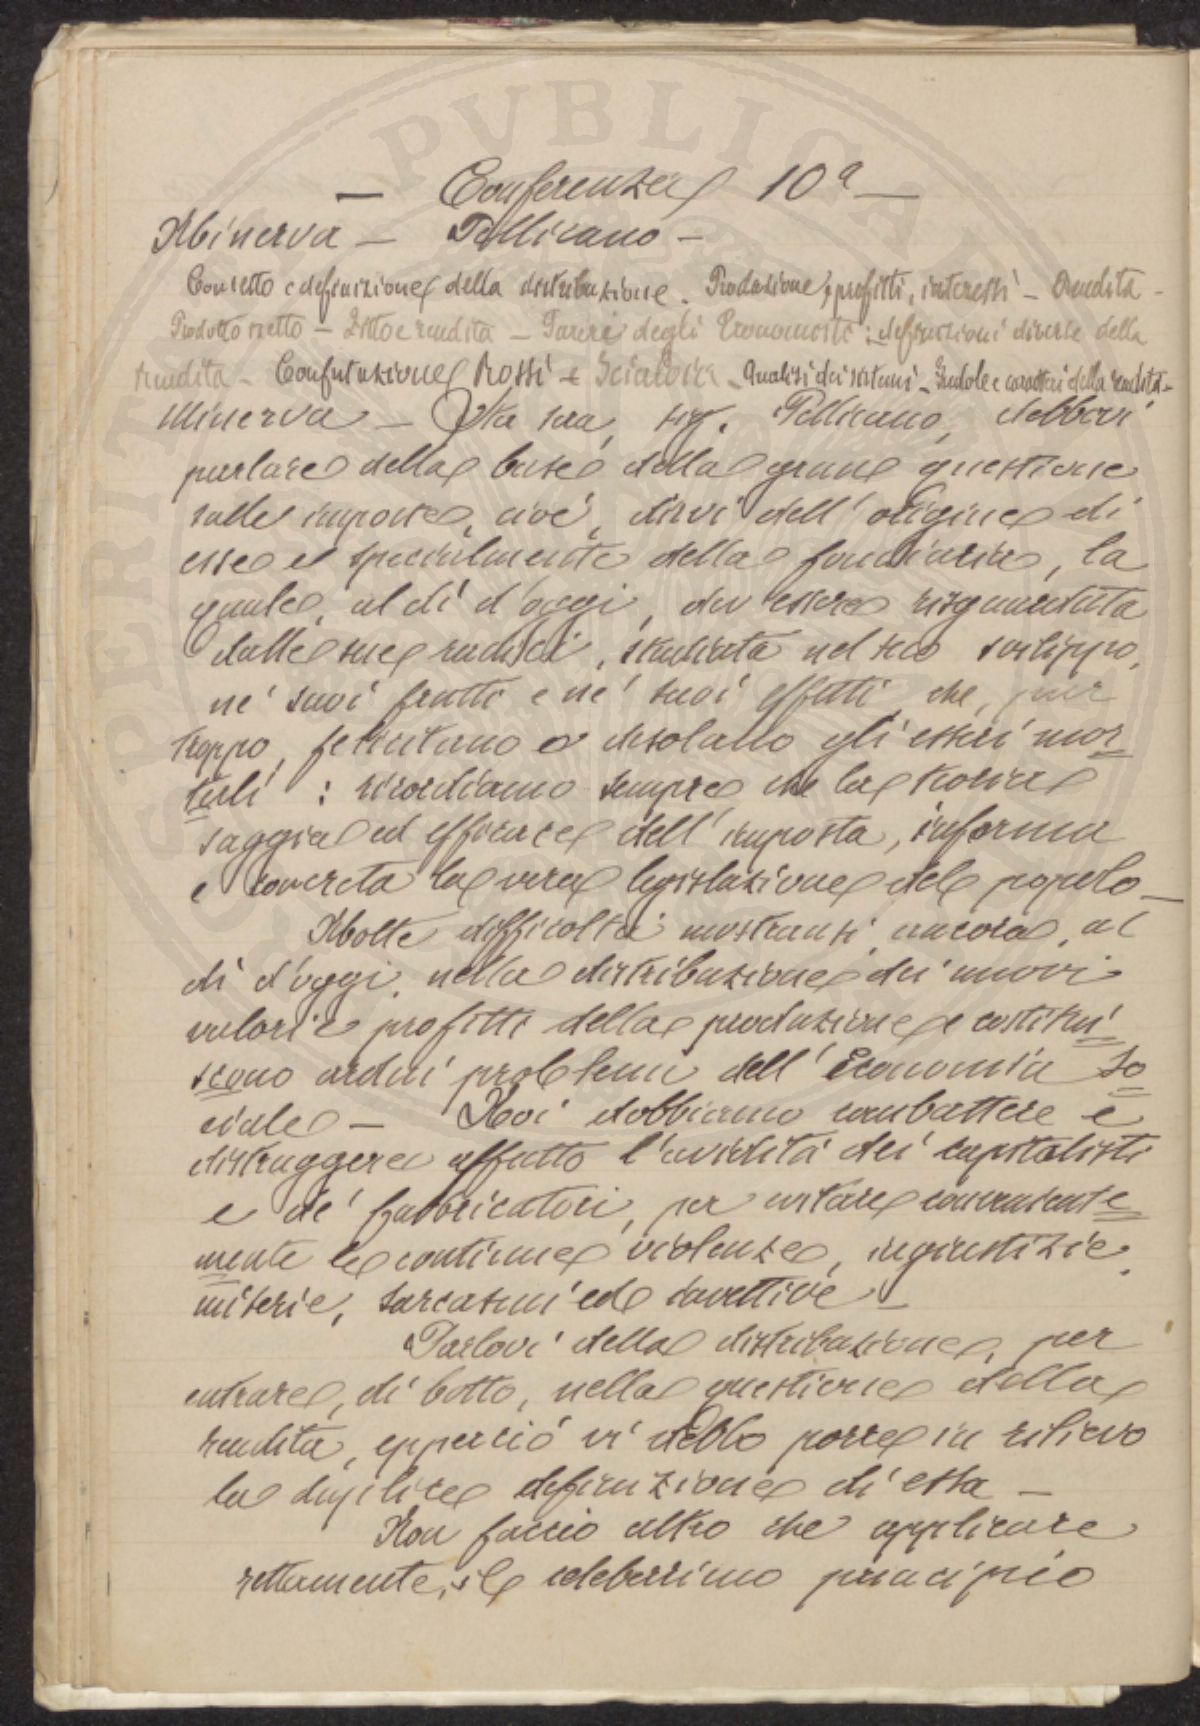 — Conferenza 10ª —
Minerva — Pellicano —
Concetto e definizione della distribuzione. Produzione, profitti, interessi — Rendita —
Prodotto netto — Fitto e rendita — Pareri degli Economisti: definizioni diverse della
rendita — Confutazione Rossi e Scialoia — Analisi dei sistemi — Indole e caratteri della rendita —
Minerva — Sta sera, sig. Pellicano, debbovi
parlare della base della gran questione
sulle imposte, cioè, dirvi dell'origine di
esse e specialmente della fondiaria, la
quale, al dì d'oggi, dev'essere risguardata
dalle sue radici, studiata nel suo sviluppo,
ne' suoi frutti e ne' suoi effetti che, pur
troppo, felicitano o desolano gli esseri mor
tali: ricordiamo sempre che la teoria
saggia ed efficace dell'imposta, informa
e concreta la vera legislazione del popolo —
Molte difficoltà mostransi ancora, al
dì d'oggi, nella distribuzione dei nuovi
valori e profitti della produzione e costitui
scono ardui problemi dell'Economia So
ciale — Noi dobbiamo combattere e
distruggere affatto l'avidità dei capitalisti
e de' fabbricatori, per evitare conveniente
mente le continue violenze, ingiustizie,
miserie, sarcasmi ed invettive —
Parlovi della distribuzione, per
entrare, di botto, nella questione della
rendita, epperciò vi debbo porre in rilievo
la duplice definizione di essa —
Non faccio altro che applicare
rettamente, il celeberrimo principio